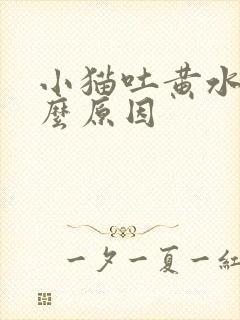 小猫吐黄水
麼原因
一夕一夏一紅